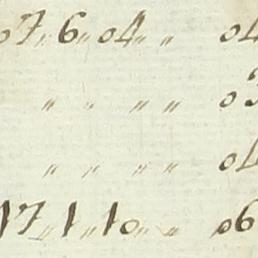 07 〃 6 〃 04 〃 〃 04
〃 〃 〃 〃 03
〃 〃 〃 〃 04
17 〃 1 〃 10 〃 〃 06